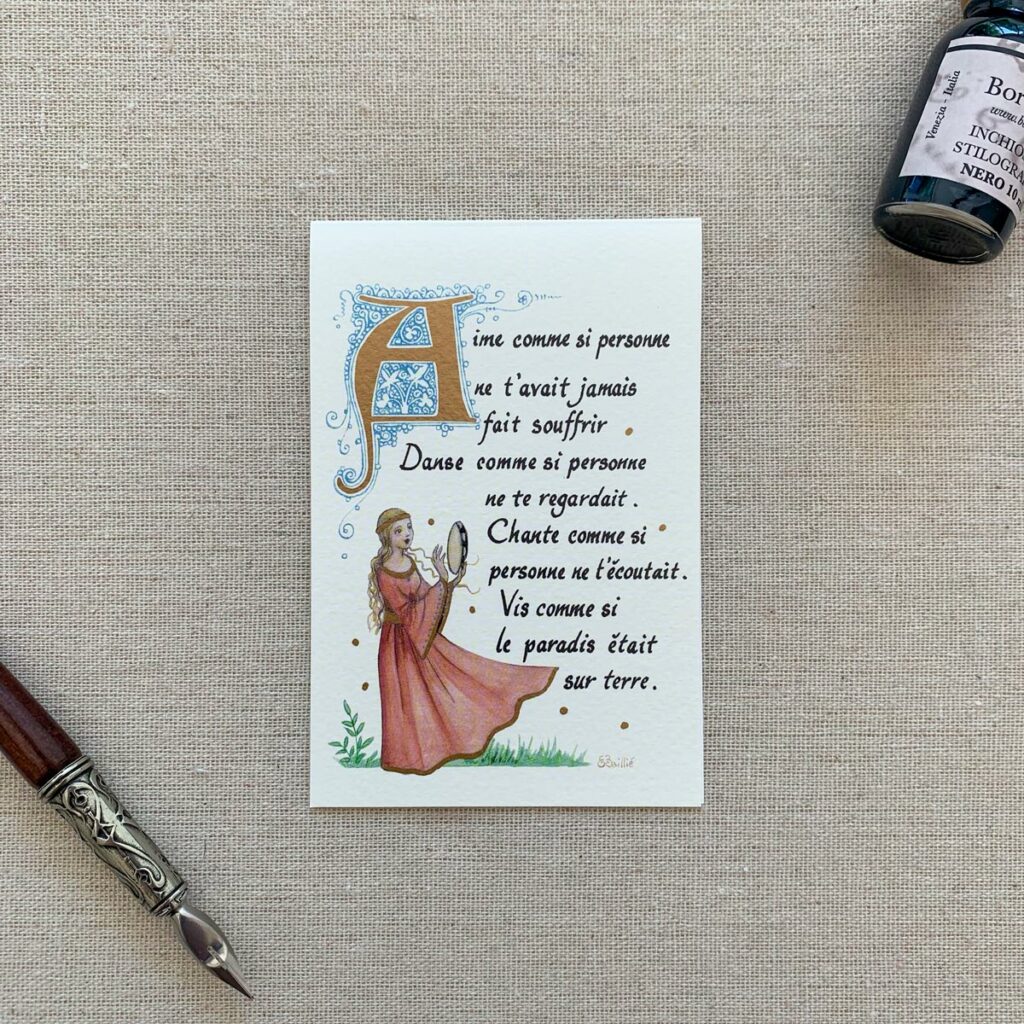 Aime comme si personne
ne t'avait jamais
fait souffrir
Danse comme si personne
ne te regardait.
Chante comme si
personne ne t'écoutait.
Vis comme si
le paradis était
sur terre.
Venezia - Italia
Bor
www.b
INCHIO
STILOGRA
NERO 10 m